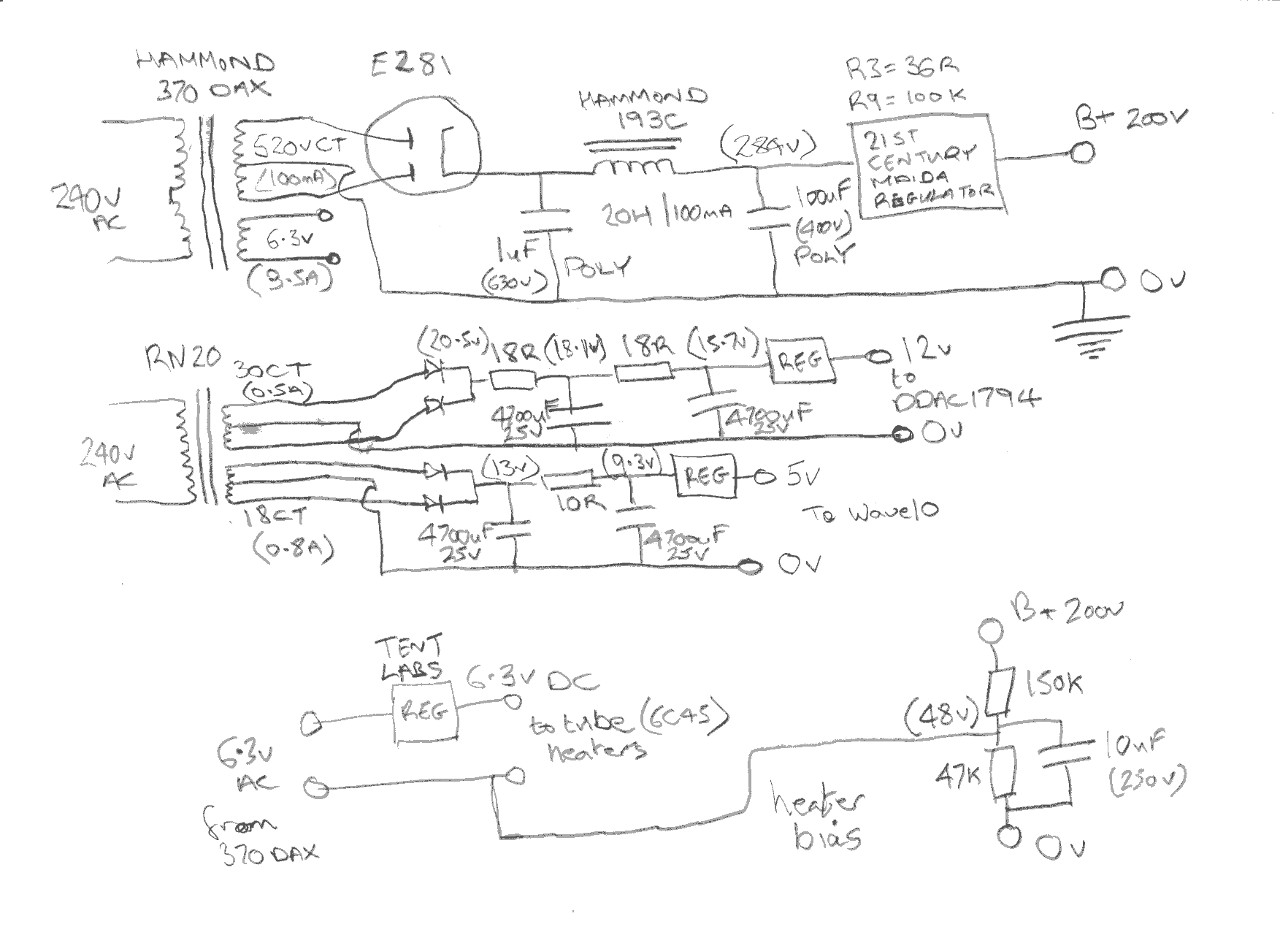 HAMMOND
370 DAX
E281
HAMMOND
193C
R3=36R
R9=100K
B+ 200V
520VCT
(100mA)
240V
AC
6.3V
(3.5A)
(284V)
21ST
CENTURY
MAIDA
REGULATOR
20H/100mA
1uF
(630V)
POLY
100uF
(400V)
POLY
0V
RN20
30CT
(0.5A)
(20.5V)
18R
(18.1V)
18R
(15.7V)
REG
12V
to
DDAC1794
4700uF
25V
4700uF
25V
0V
240V
AC
18CT
(0.8A)
(13V)
10R
(9.3V)
REG
5V
To WaveIO
4700uF
25V
4700uF
25V
0V
TENT
LABS
REG
6.3V DC
to tube (6C45)
heaters
6.3V
AC
from
370 DAX
B+ 200V
150K
(48V)
47K
10uF
(250V)
heater
bias
0V